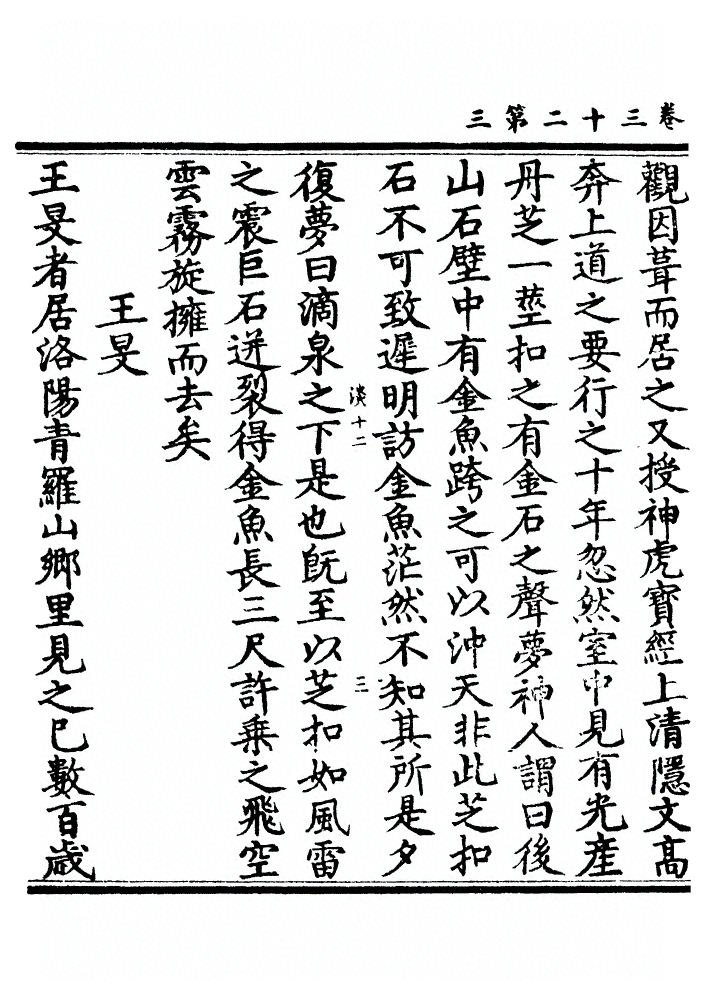 卷三十二第三
觀因葺而居之又授神虎寶經上清隱文高
奔上道之要行之十年忽然室中見有光産
丹芝一莖扣之有金石之聲夢神人謂曰後
山石壁中有金魚跨之可以沖天非此芝扣
石不可致遲明訪金魚茫然不知其所是夕
淡十二
三
復夢曰滴泉之下是也旣至以芝扣如風雷
之震巨石迸裂得金魚長三尺許乗之飛空
雲霧旋擁而去矣
王旻
王旻者居洛陽青羅山鄉里見之已數百歲